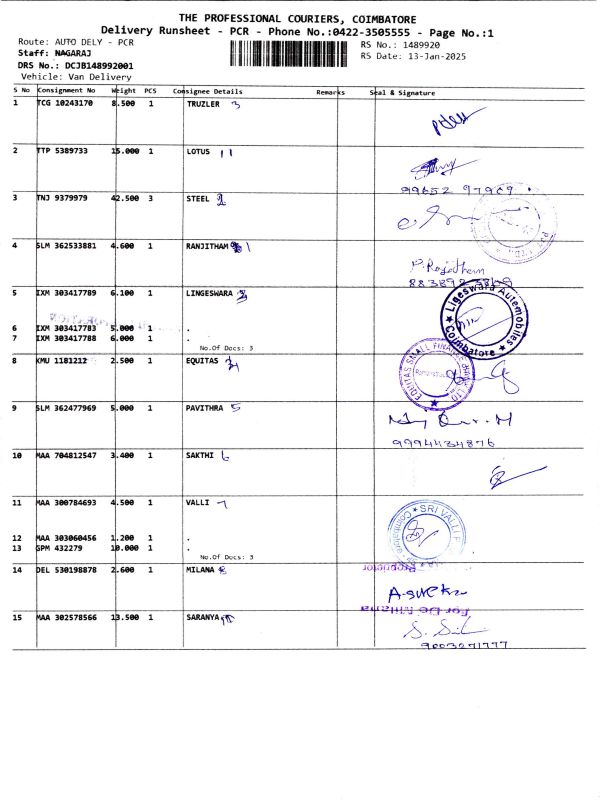 THE PROFESSIONAL COURIERS, COIMBATORE
Delivery Runsheet - PCR - Phone No.:0422-3505555 - Page No.:1
Route: AUTO DELY - PCR
RS No.: 1489920
Staff: NAGARAJ
RS Date: 13-Jan-2025
DRS No.: DCJB148992001
Vehicle: Van Delivery
S No Consignment No Weight PCS Consignee Details Remarks Seal & Signature
1 TCG 10243170 8.500 1 TRUZLER 3
2 TTP 5389733 15.000 1 LOTUS 11
99652 97969
3 TNJ 9379979 42.500 3 STEEL 2
4 SLM 362533881 4.600 1 RANJITHAM 1
5 IXM 303417789 6.100 1 LINGESWARA
Ligeswara Automobiles
Coimbatore
6 IXM 303417783 5.000 1 .
7 IXM 303417788 6.000 1 .
No.Of Docs: 3
8 KMU 1181212 2.500 1 EQUITAS
EQUITAS SMALL FINANCE BANK LTD
9 SLM 362477969 5.000 1 PAVITHRA 5
9994434876
10 MAA 704812547 3.400 1 SAKTHI 6
11 MAA 300784693 4.500 1 VALLI 7
SRI VALLI
12 MAA 303060456 1.200 1 .
13 GPM 432279 10.000 1 .
No.Of Docs: 3
14 DEL 530198878 2.600 1 MILANA 8
Proprietor
For De Milana
15 MAA 302578566 13.500 1 SARANYA
9003271777